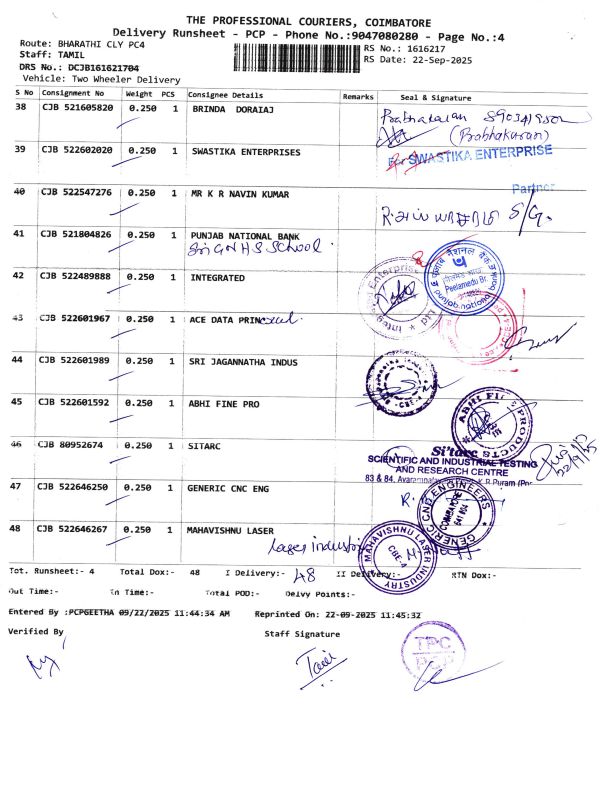 THE PROFESSIONAL COURIERS, COIMBATORE
Delivery Runsheet - PCP - Phone No.:9047080280 - Page No.:4
Route: BHARATHI CLY PC4
Staff: TAMIL
DRS No.: DCJB161621704
Vehicle: Two Wheeler Delivery
RS No.: 1616217
RS Date: 22-Sep-2025
S No Consignment No Weight PCS Consignee Details Remarks Seal & Signature
38 CJB 521605820 0.250 1 BRINDA DORAIAJ
(Prabhakaran)
39 CJB 522602020 0.250 1 SWASTIKA ENTERPRISES
For SWASTIKA ENTERPRISE
Partner
40 CJB 522547276 0.250 1 MR K R NAVIN KUMAR
41 CJB 521804826 0.250 1 PUNJAB NATIONAL BANK
School
पंजाब नैशनल बैंक
Peelamedu Br.
punjab national bank
42 CJB 522489888 0.250 1 INTEGRATED
43 CJB 522601967 0.250 1 ACE DATA PRIN
44 CJB 522601989 0.250 1 SRI JAGANNATHA INDUS
45 CJB 522601592 0.250 1 ABHI FINE PRO
46 CJB 80952674 0.250 1 SITARC
Si'tarc
SCIENTIFIC AND INDUSTRIAL TESTING
AND RESEARCH CENTRE
83 & 84, K.R.Puram (Po
22/9/25
47 CJB 522646250 0.250 1 GENERIC CNC ENG
GENERIC CNC ENGINEERS
COIMBATORE
641 004
48 CJB 522646267 0.250 1 MAHAVISHNU LASER
Laser industry
MAHAVISHNU LASER INDUSTRY
CBE-4
Tot. Runsheet:- 4 Total Dox:- 48 I Delivery:- 48 II Delivery:- RTN Dox:-
Out Time:- In Time:- Total POD:- Delvy Points:-
Entered By :PCPGEETHA 09/22/2025 11:44:34 AM Reprinted On: 22-09-2025 11:45:32
Verified By
Staff Signature
TPC
PCP